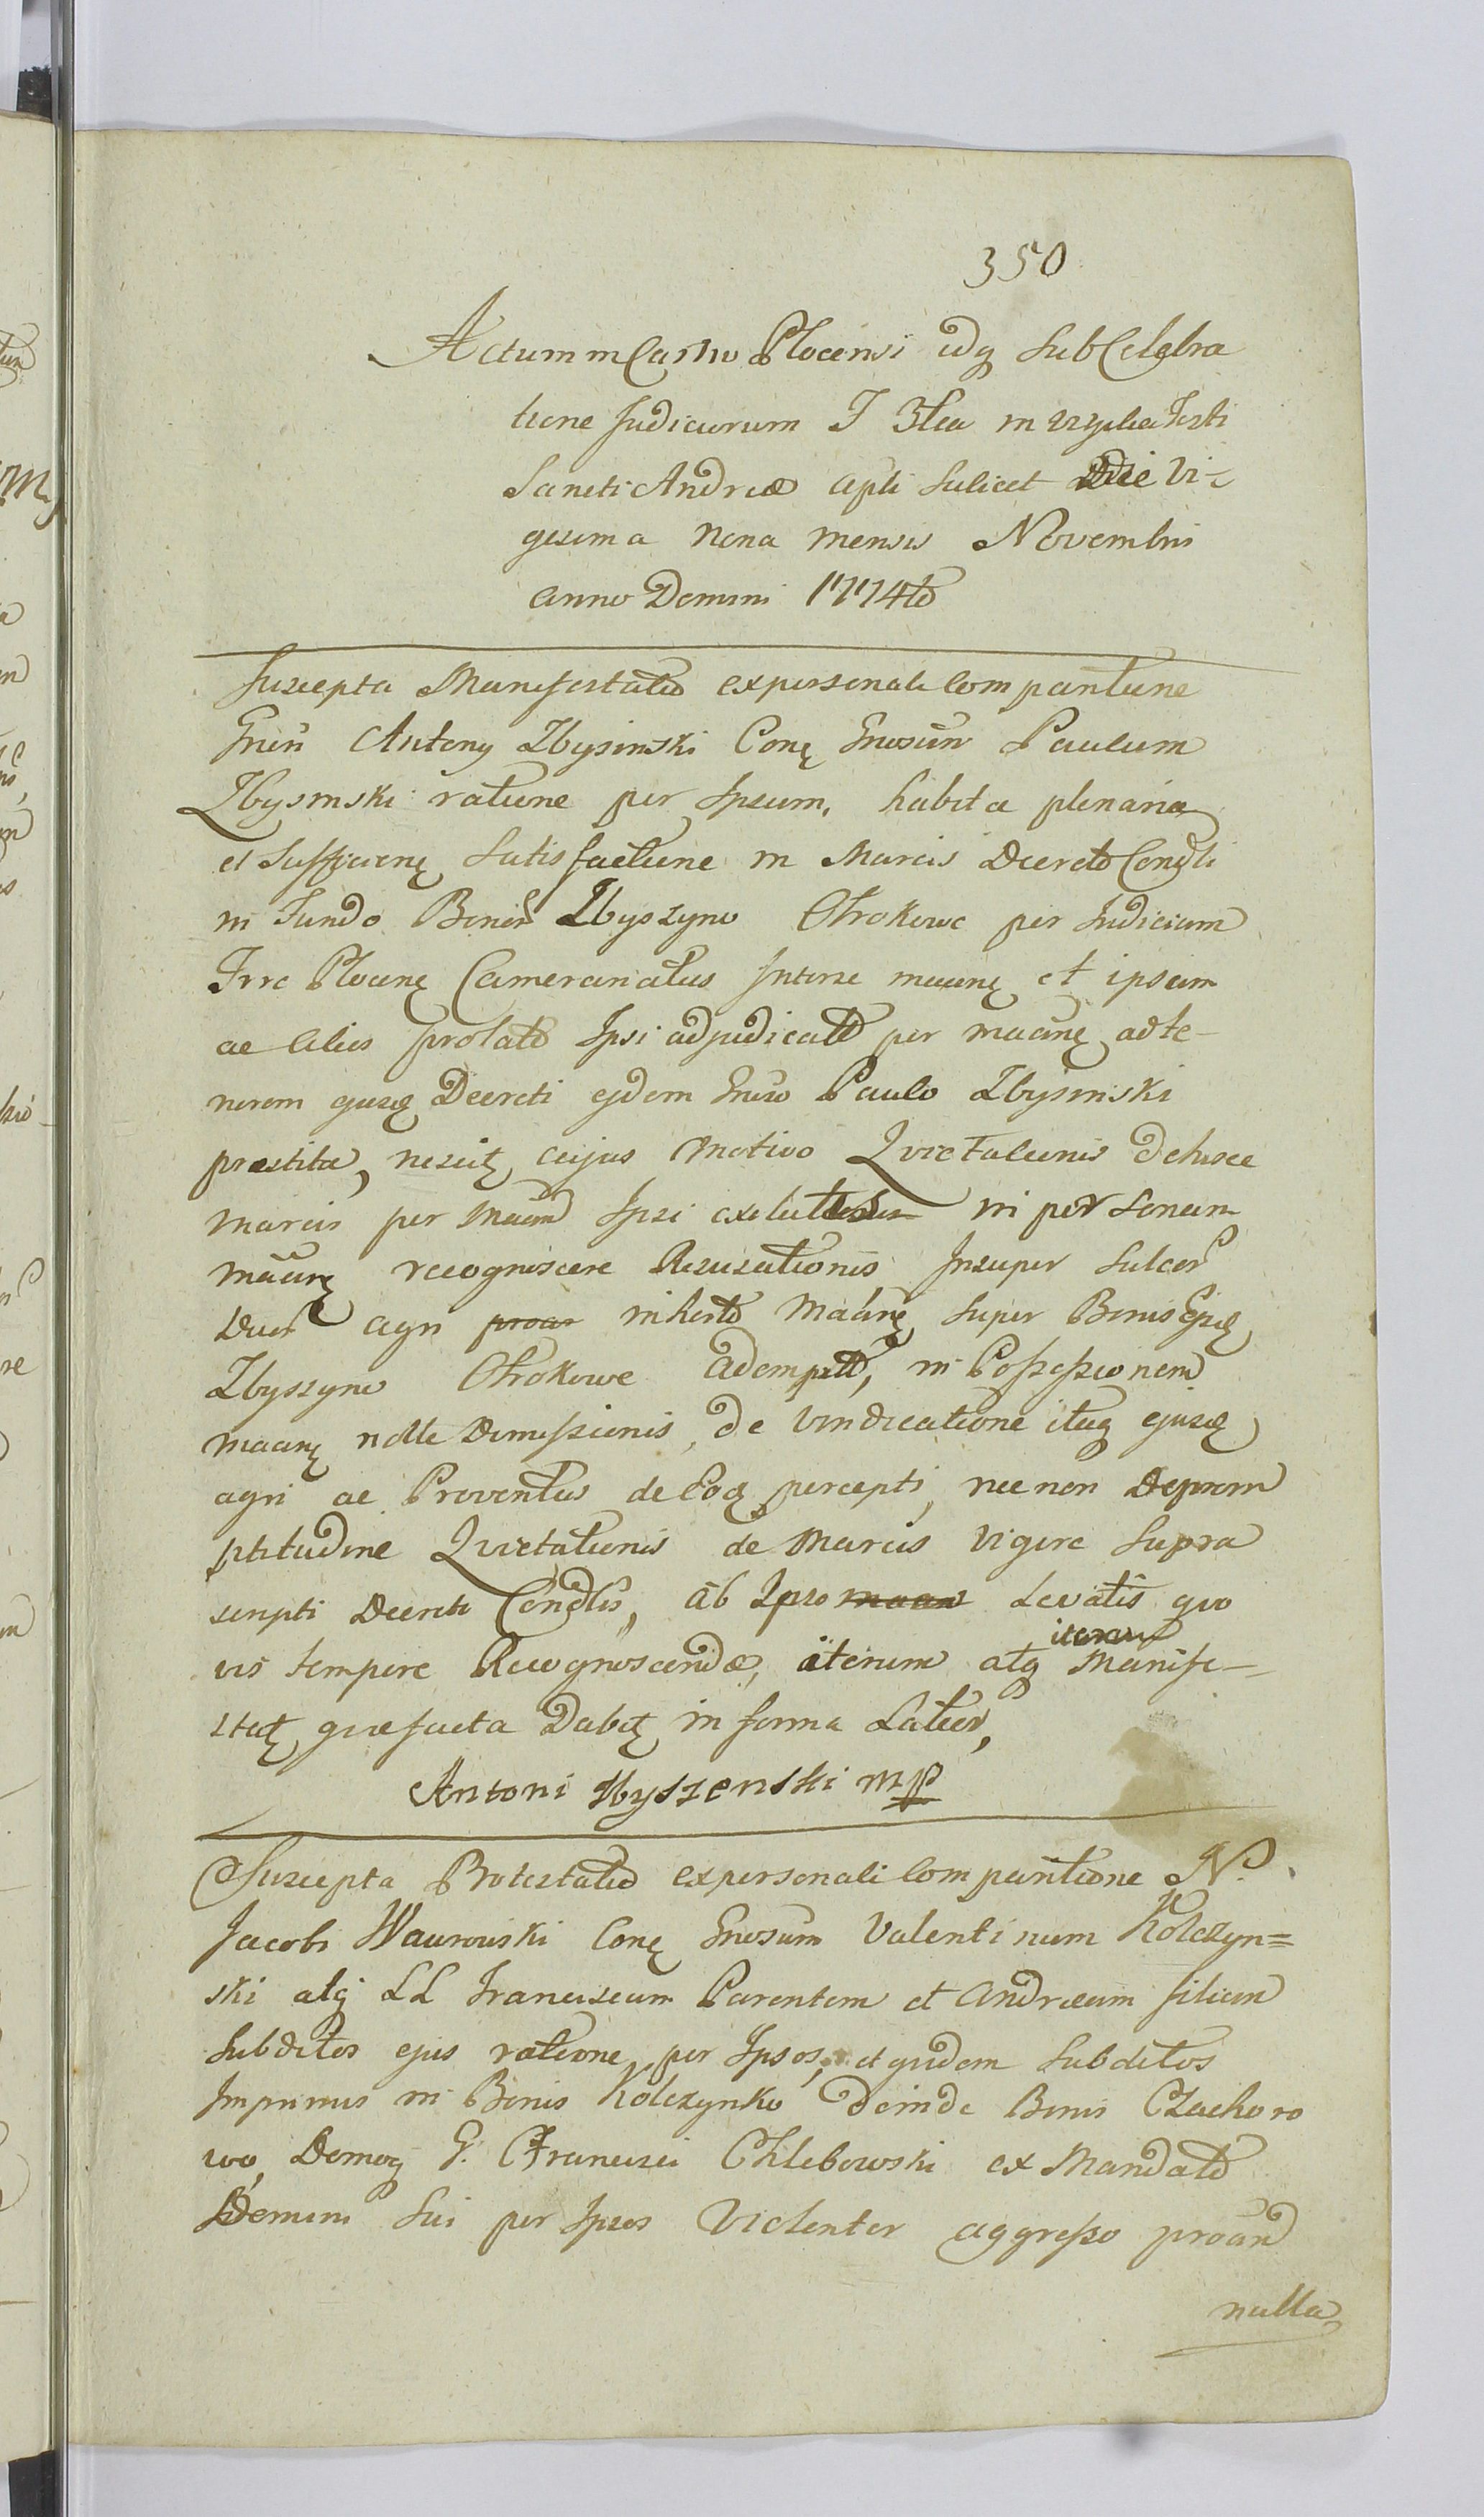 350
Actum in Castro Plocensi idq Sub Celebra
tione Judiciorum T Zlia in vigilia Festi
Sancti Andreæ Apli Scilicet Die Vi-
gesima Nona mensis Novembris
Anno Domini 1774to
Suscepta Manifestatio ex personali Comparitione
Gnesi Antony Zbysinski Conę Gnosum Paulum
Zbysinski ratione per Ipsum, habita plenaria
et Sufficienę Satisfactione in Marcis Decreto Condli
in Fundo Bonor Zbyszyno Otrokowe per Judicium
Trre Plocenę Cameranatus Interse maanę et ipsum
ac Alios prolato Ipsi adjudicato per maanę ad te-
norem ejusq Decreti ejdem Gneso Paulo Zbysinski
præstita, nescitę cujus Motivo Quietationis de hisce
marcis per Maam Ipsi in personam
maanę recogniscere Recusationis Insuper Sulcor
Duor Agri proar inhesto Maanę Super Bonis Ejusq
Zbyszyno Otrokowe adempto, in Possessionem
maanę nolle Dimissionis, de Vindicatione itaq ejusq
agri ac Proventus de Eoq percepti, nec non Deprom
ptitudine Quietationis de Marcis Vigore Supra
scripti Decreti Condlis, ab Ipso maan Levatis quo
vis tempore Recognoscendæ, iterum atq iterum Manife-
statę quæ facta Dabitę in forma Latiori,
Antoni Zbyszenski mp
Suscepta Protestatio ex personali Comparitione N.
Jacobi Waurowski Conę Gnosum Valentinum Kolczyn=
ski atq LL Franciscum Parentem et Andræam filium
Subditos ejus ratione per Ipsos, et quidem Subditos
Inprimis in Bonis Kolczynko deinde Bonis Czachoro
wo, Domoq G. Francisci Chlebowski ex Mandato
Domini Sui per Ipsos Violenter aggresso proan
nulla